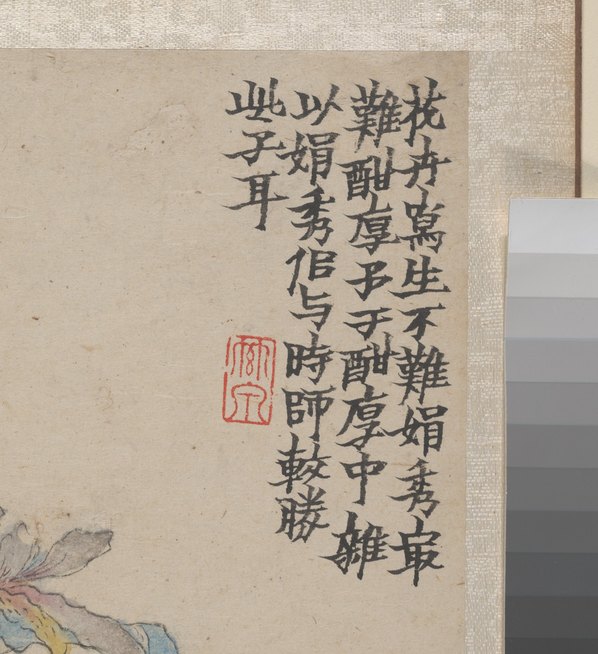 花卉寫生不難娟秀㝡
難酣厚予于酣厚中雜
以娟秀佀与時師較勝
些子耳